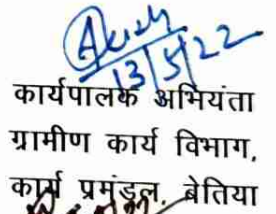 13/5/22
कार्यपालक अभियंता
ग्रामीण कार्य विभाग,
कार्य प्रमंडल, बेतिया